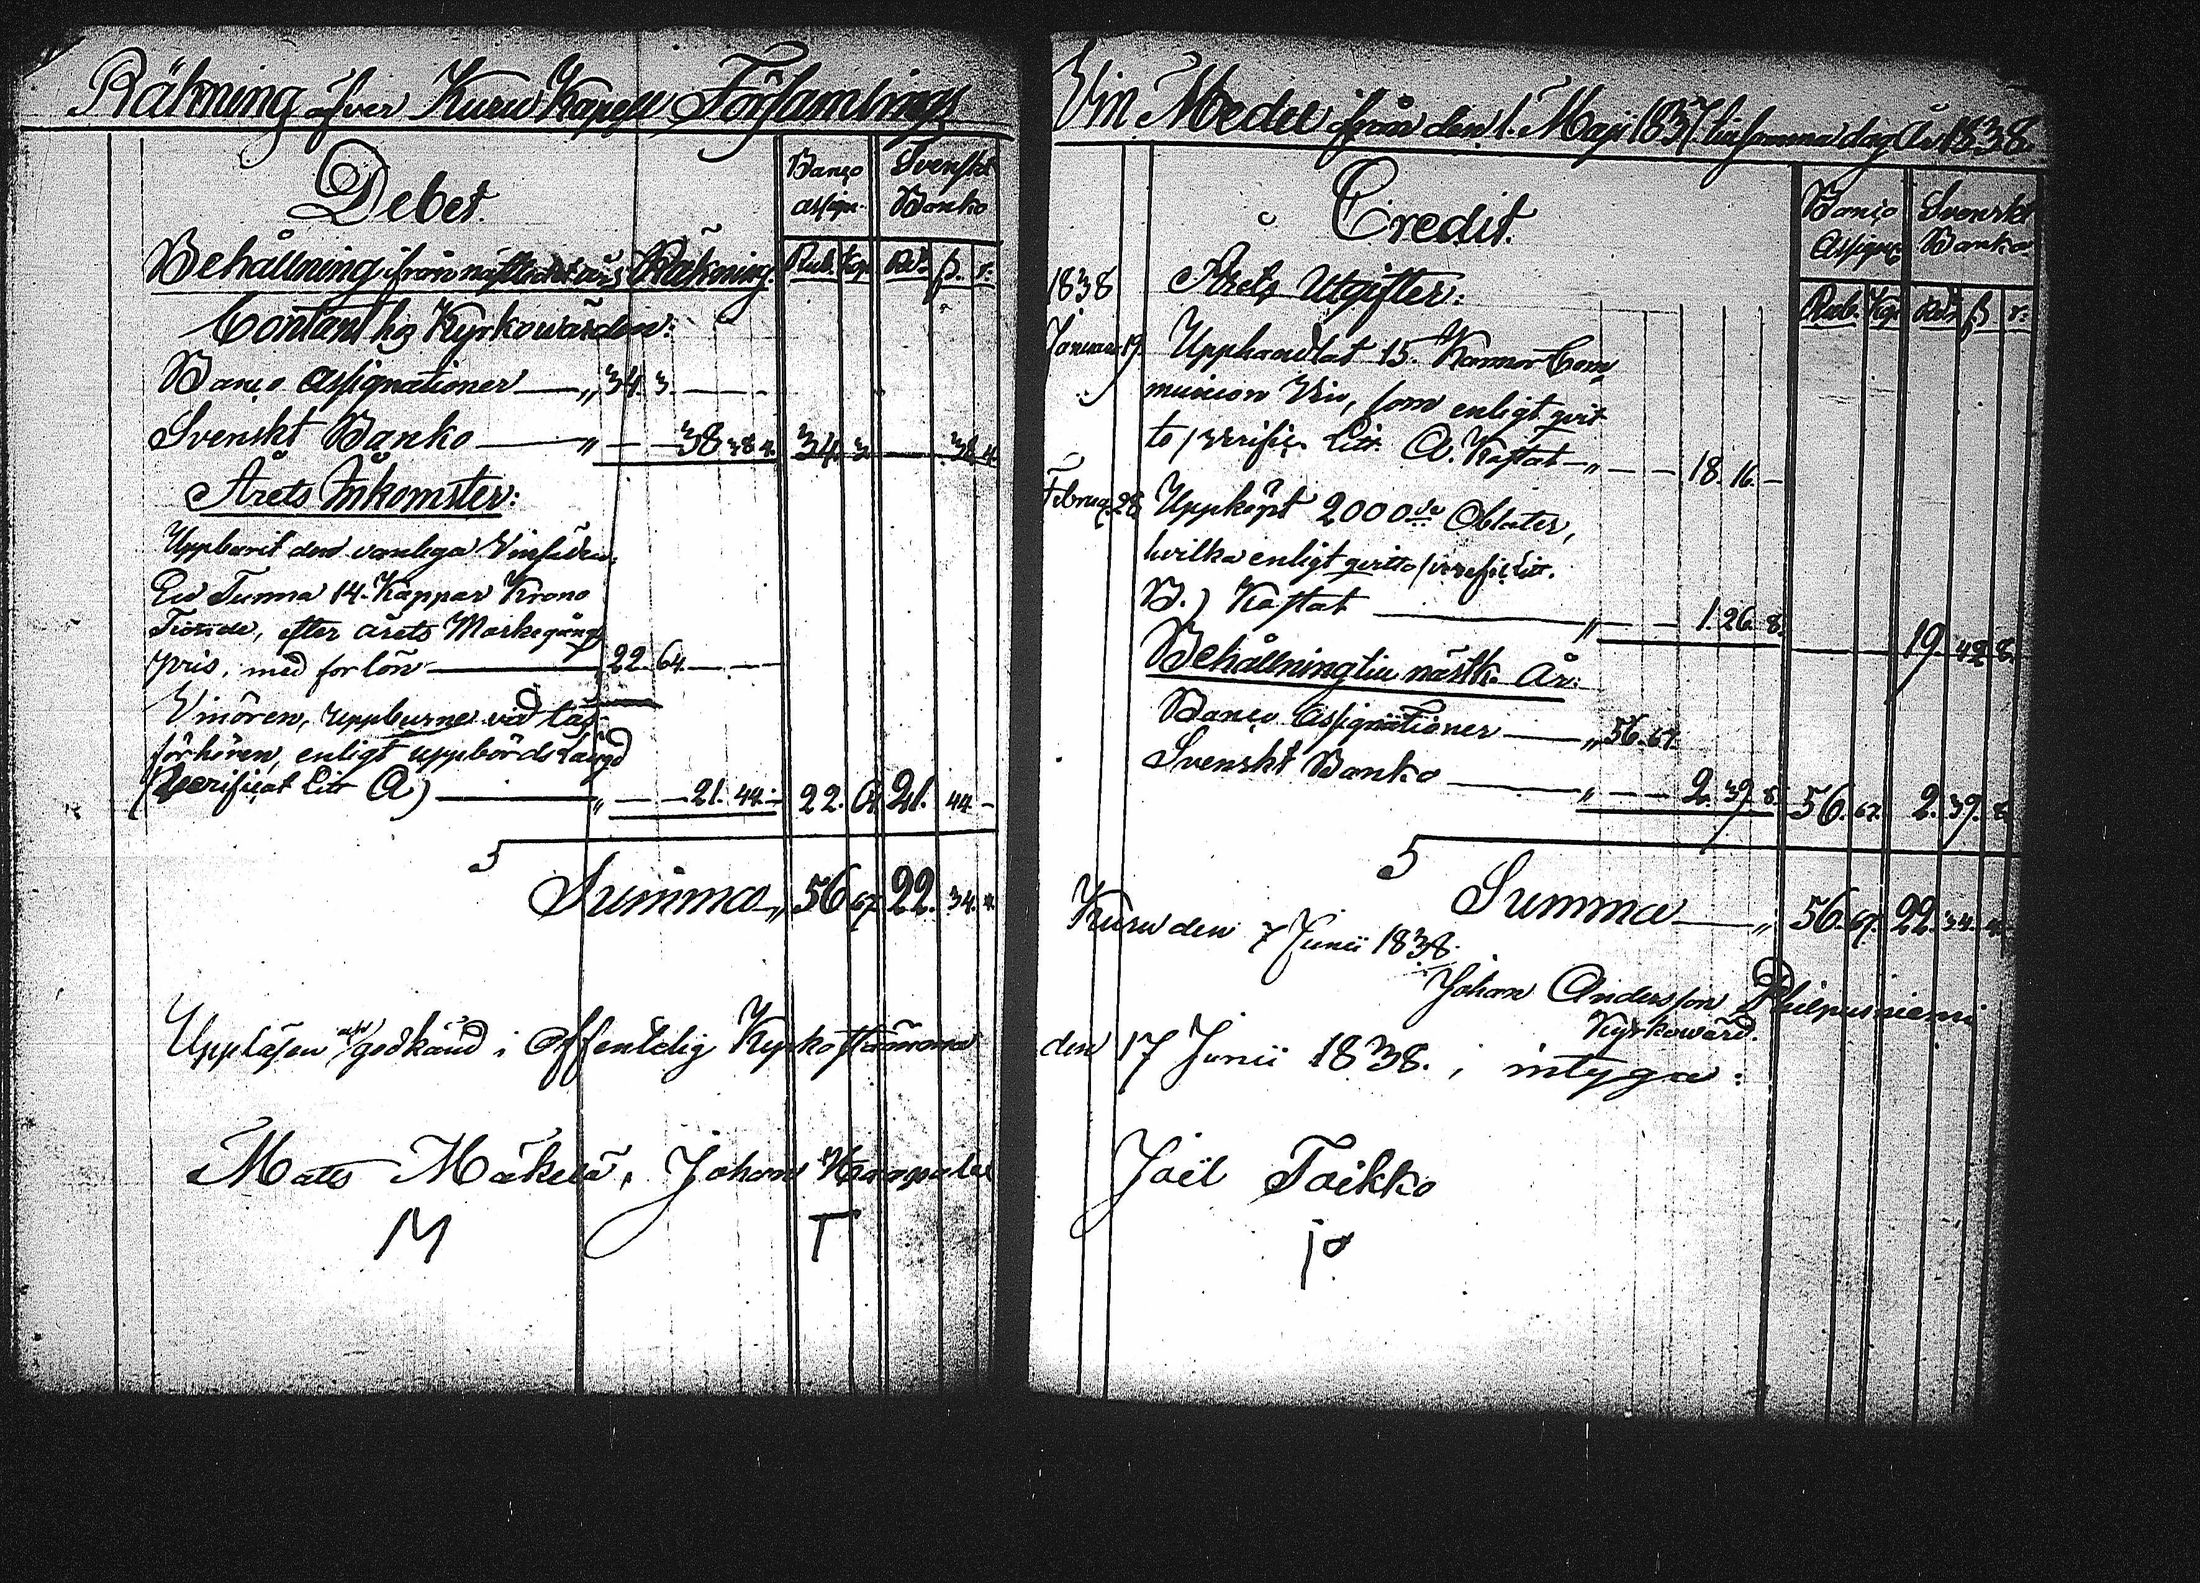 Räkning öfver Kuru Kapell Församlings
Debet.
Banco assign. Svenskt Banko
Rub. Kop. Rd. ß. r.
Behållning från nästledne års Räkning.
Contant hos Kyrkowärden:
Banco Assignationer — „ 34. 3. — — —
Svenskt Banko — „ — — 38. 4. 34. 3 — 38. 4.
Årets Inkomster:
Uppburit den vanliga Vinsäden,
En Tunna 14. Kappar Krono
Tionde, efter årets Markegångs
pris, med forlön — 22. 64. — — —
Vinören, uppburne vid läs-
förhören, enligt uppbördslängd
(Verificat Litt A) — „ — — 21. 44. — 22. 64. 21. 44. —
Summa „ 56. 67. 22. 34. 4.
Uppläsen och godkänd i offentelig Kyrkostämma
Mats Mäkelä, Johan
M T
Vin Medel ifrån den 1. Maji 1837 till samma dag År 1838.
Credit.
Banco Assign. Svenskt Banko
Rub. Kop. Rd. ß. r.
1838 Årets Utgifter:
Januari 19. Upphandlat 15. Kannor Com
munion Vin, som enligt qvit
to /verific. Litt. A. kostat — „ — — 18. 16. —
Februa. 28. Uppköpt 2000de Oblater,
hvilka enligt qvitto /verific. Litt.
B.) kostat — „ — — 1. 26. 8. — 19. 42. 8.
Behållning till nästk. År:
Banco Assignationer — „ 56. 67.
Svenskt Banko — „ — — 2. 39. 8. 56. 67. 2. 39. 8.
Summa — „ 56. 67. 22. 34. 4.
Kuru den 7 Junii 1838.
Johan Andersson Philpusniemi
Kyrkowärd.
den 17 Junii 1838., intyga:
Joël Toikko